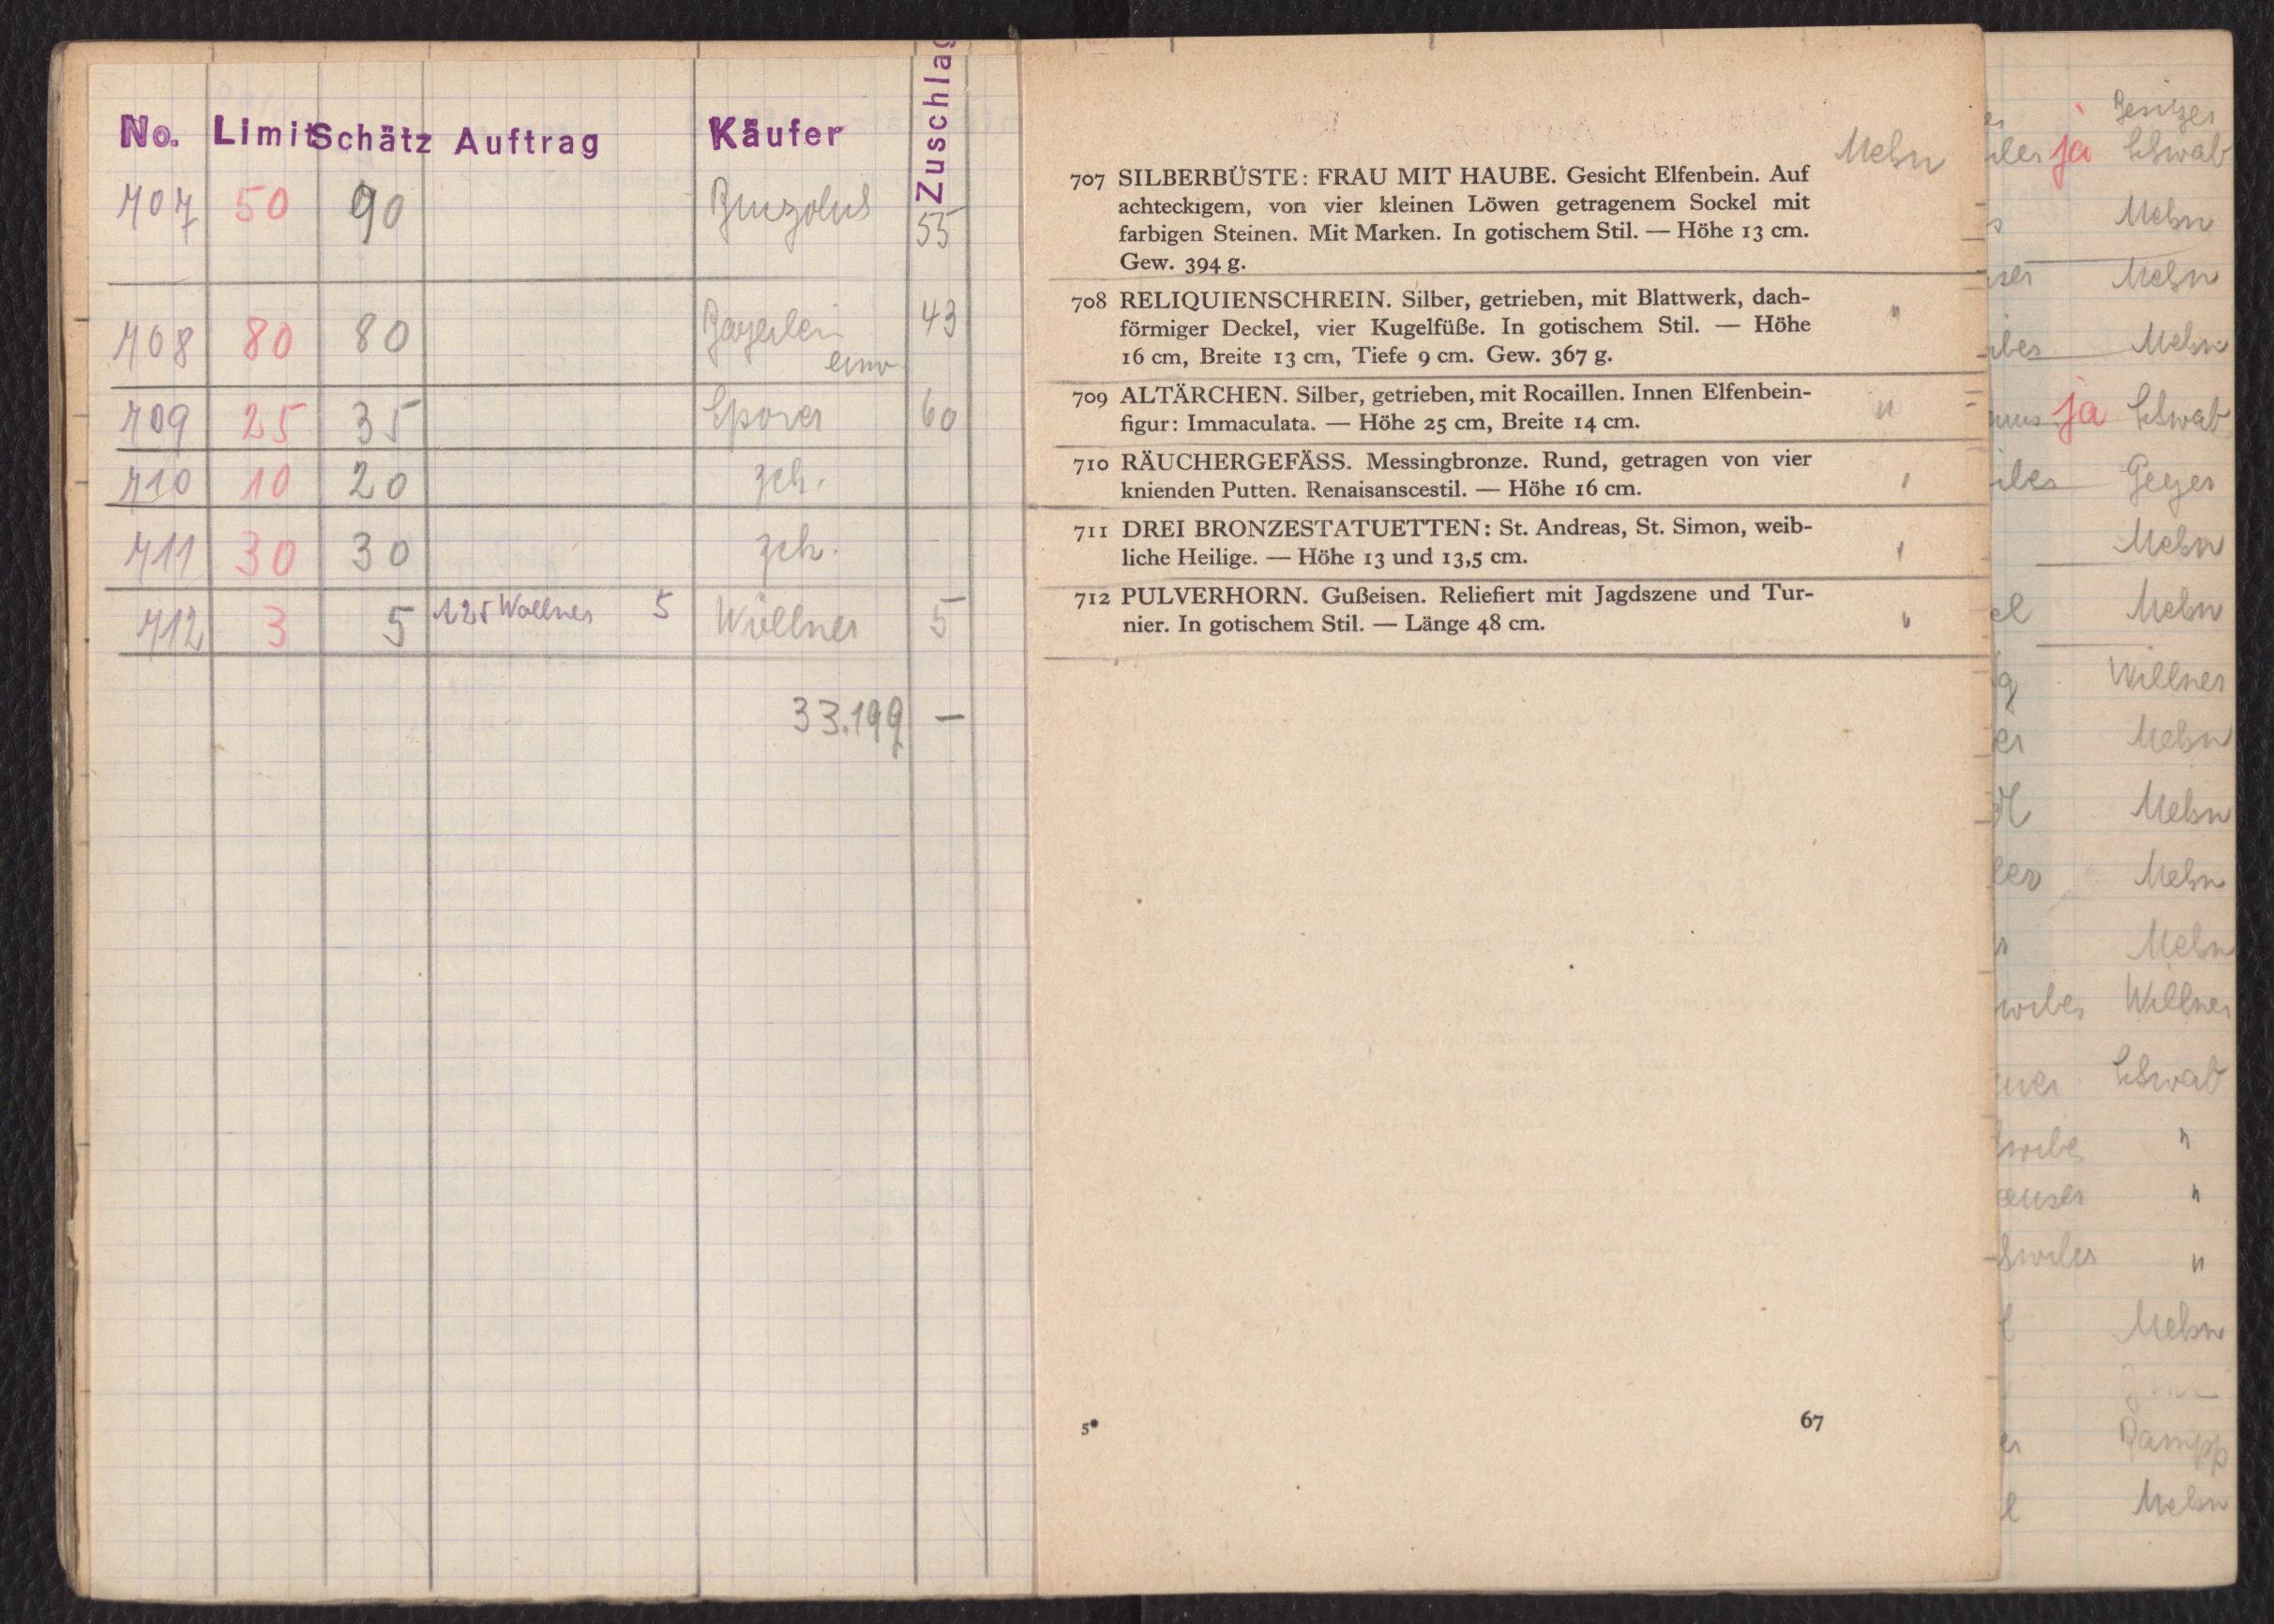 No. Limit Schätz Auftrag Käufer Zuschlag
707 50 90 55
708 80 80 43
709 25 35 60
710 10 20 zch.
711 30 30 zch.
712 3 5 125 Wöllner 5 Wöllner 5
33.199 —
Mehn
707 SILBERBÜSTE: FRAU MIT HAUBE. Gesicht Elfenbein. Auf
achteckigem, von vier kleinen Löwen getragenem Sockel mit
farbigen Steinen. Mit Marken. In gotischem Stil. — Höhe 13 cm.
Gew. 394 g.
708 RELIQUIENSCHREIN. Silber, getrieben, mit Blattwerk, dach-
förmiger Deckel, vier Kugelfüße. In gotischem Stil. — Höhe "
16 cm, Breite 13 cm, Tiefe 9 cm. Gew. 367 g.
709 ALTÄRCHEN. Silber, getrieben, mit Rocaillen. Innen Elfenbein-
figur: Immaculata. — Höhe 25 cm, Breite 14 cm. "
710 RÄUCHERGEFÄSS. Messingbronze. Rund, getragen von vier
knienden Putten. Renaisanscestil. — Höhe 16 cm.
711 DREI BRONZESTATUETTEN: St. Andreas, St. Simon, weib-
liche Heilige. — Höhe 13 und 13,5 cm.
712 PULVERHORN. Gußeisen. Reliefiert mit Jagdszene und Tur-
nier. In gotischem Stil. — Länge 48 cm. "
5*
67
Besitzer
ja Schwab
Mehn
Mehn
Mehn
ja Schwab
Geyer
Mehn
Mehn
Willner
Mehn
Mehn
Mehn
Mehn
Willner
Schwab
"
"
"
Mehn
Dampp
Mehn